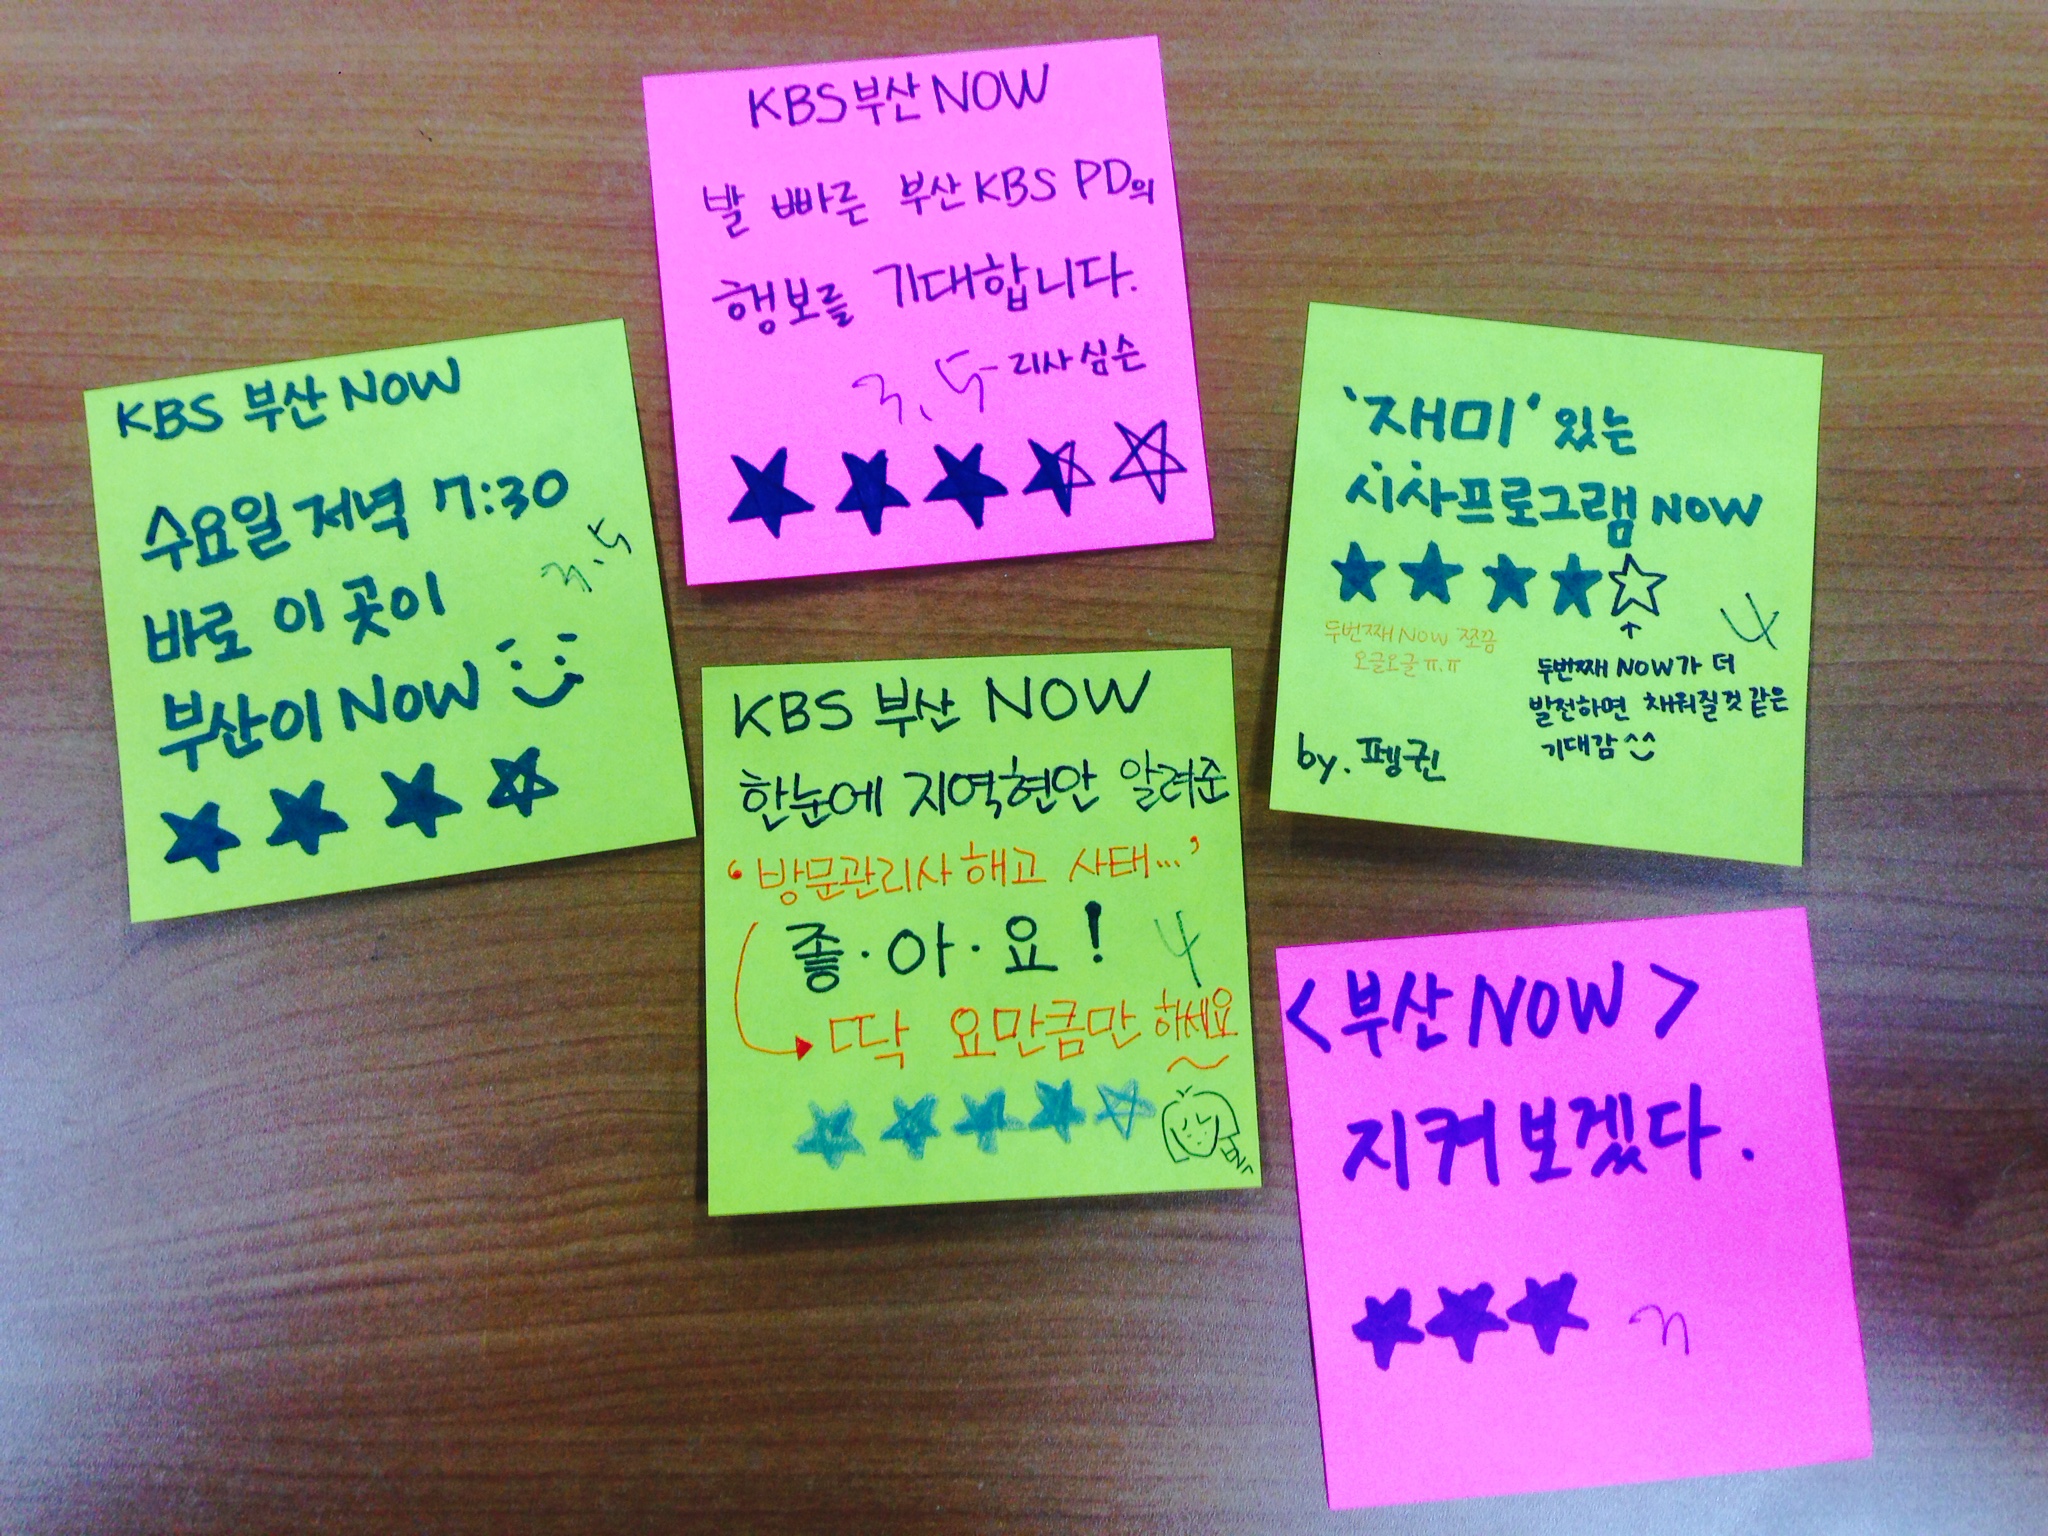 KBS 부산 NOW
수요일 저녁 7:30
3.5
바로 이 곳이
부산이 NOW
KBS부산 NOW
발 빠른 부산 KBS PD의
행보를 기대합니다.
3.5 - 리사심슨
'재미' 있는
시사프로그램 NOW
두번째 NOW 쪼끔
오글오글 ㅠ.ㅠ
4
두번째 NOW가 더
발전하면 채워질것 같은
기대감^^
by. 펭귄
KBS 부산 NOW
한눈에 지역현안 알려준
'방문관리사 해고 사태...'
좋·아·요! 4
딱 요만큼만 하세요
<부산 NOW>
지켜보겠다.
3